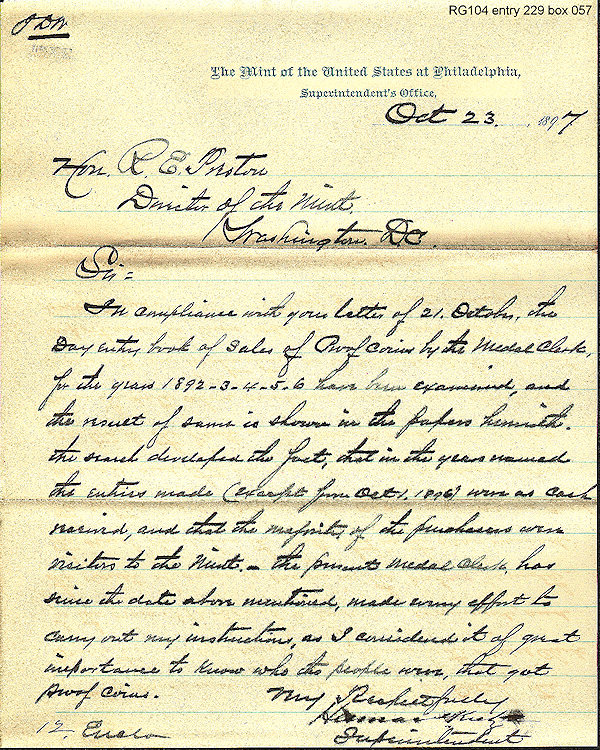 RG104 entry 229 box 057
The Mint of the United States at Philadelphia,
Superintendent's Office,
Oct 23. 1897
Hon. R. E. Preston
Director of the Mint.
Washington. D.C.
Sir=
In compliance with your letter of 21. October, the
Day entry book of Sales of Proof Coins by the Medal Clerk,
for the years 1892-3-4-5-6 have been examined, and
the result of same is shown in the papers herewith.
the search developed the fact, that in the years named
the entries made (except from Oct. 1. 1896) were as cash
received, and that the majority of the purchasers were
visitors to the Mint. – the present Medal Clerk, has
since the date above mentioned, made every effort to
carry out my instructions, as I considered it of great
importance to know who the people were, that got
proof Coins.
Very Respectfully
Herman Kretz
Superintendent
12. Enclo